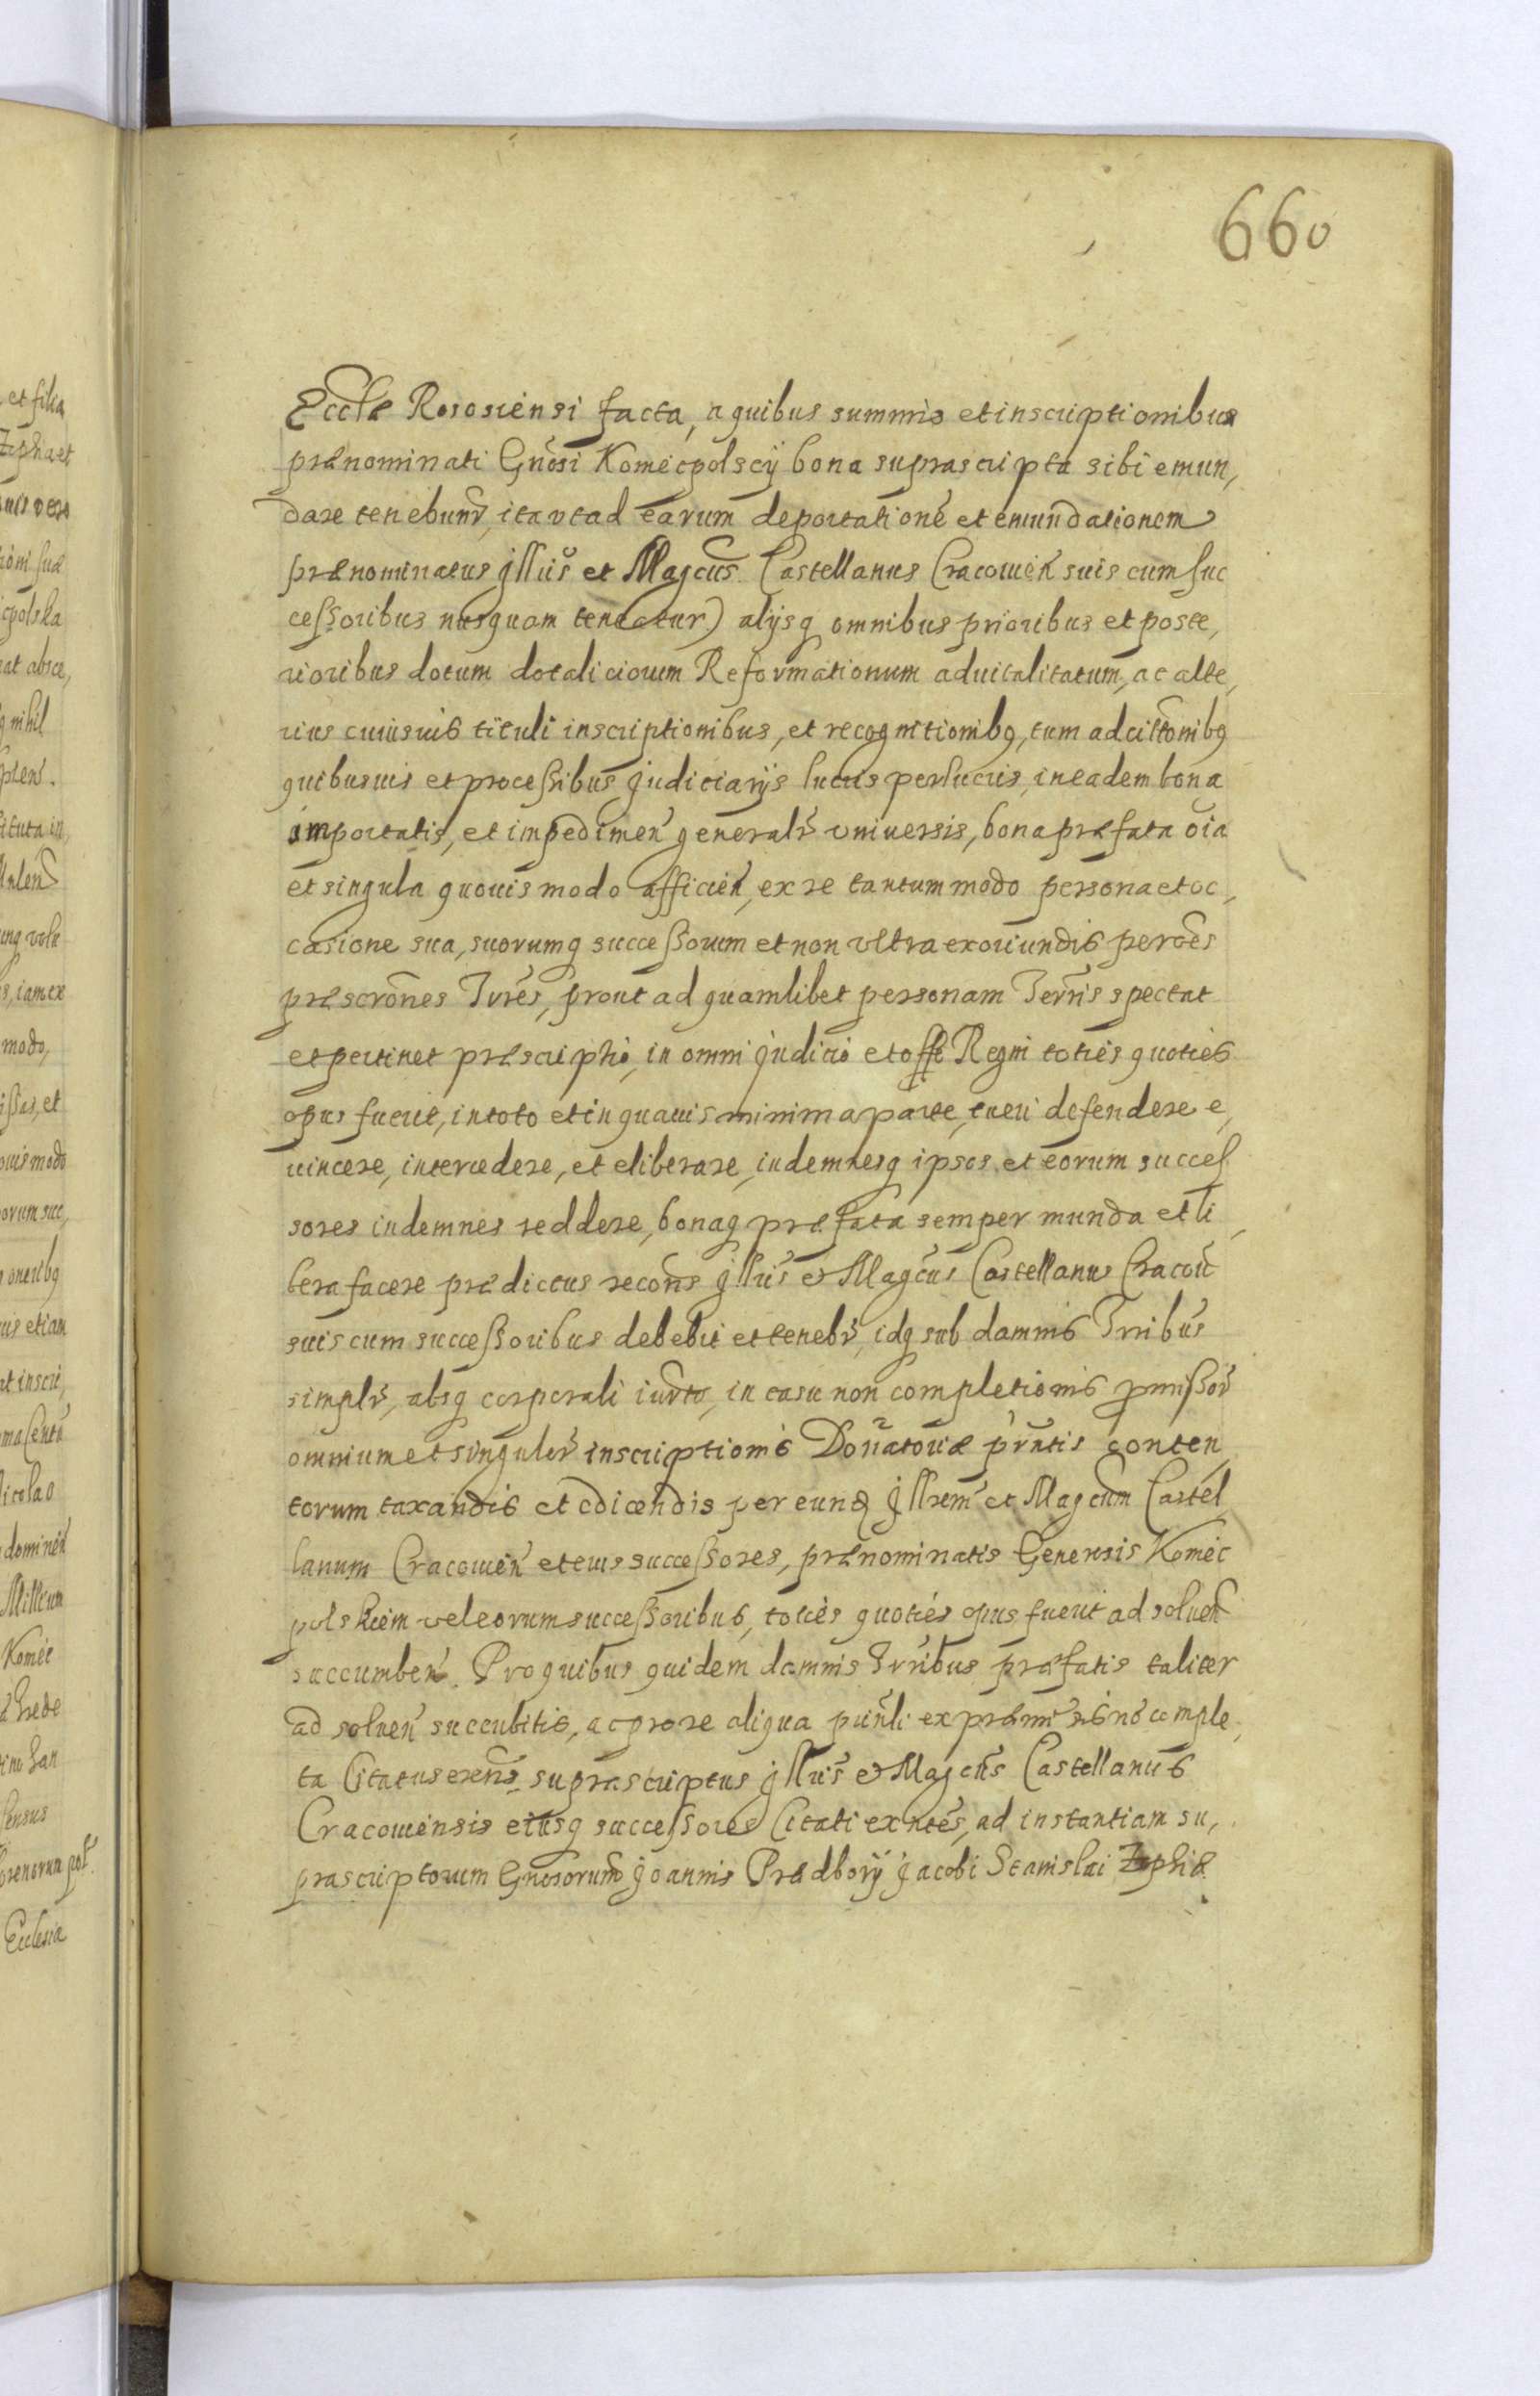 660
Eccłæ Rososiensi facta, a quibus summis et inscriptionibus
prænominati Gnosi Koniecpolscÿ bona suprascripta sibi emun,
dare tenebunr, ita vt ad earum deportatione et emundationem
prænominatus Jllus et Magcus Castellanus Cracouien suis cum suc
cessoribus nusquam teneatur) alijsq omnibus prioribus et poste,
rioribus dotum dotaliciorum Reformationum aduitalitatum, ac alte,
rius cuiusuis tituli inscriptionibus, et recognitionibq, tum ad
quibusuis et processibus Judiciarijs lucris perlucris, in eadem bona
importatis, et impedimen generalr vniuersis, bona præfata oia
et singula quouis modo afficien, ex re tantummodo persona et oc,
casione sua, suorumq successorum et non vltra exoriundis per oes
præscrones Trres, prout ad quamlibet personam Terris spectat
et pertinet præscriptio, in omni Judicio et offo Regni toties quoties
opus fuerit, in toto et in quauis minima parte, tueri defendere e,
uincere, intercedere, et eliberare, indemnesq ipsos et eorum succes
sores indemnes reddere, bonaq præfata semper munda et li,
bera facere prædictus recons Jllus et Magcus Castellanus Cracou
suis cum successoribus debebit et tenebr, idq sub damnis Trribus
simplr, absq corporali iurto, in casu non completionis pmissor
omnium et singulor inscriptionis Donatoriæ prntis conten,
torum taxandis et edicendis per eund Jllrem et Magcum Castel
lanum Cracouien et eius successores, prænominatis Generosis Koniec
polskiem vel eorum successoribus, toties quoties opus fuerit ad soluen
succumben. Pro quibus quidem damnis Trribus præfatis taliter
ad soluen succubitis, ac pro re aliqua punli ex præmissis no comple,
ta Citatus exens suprascriptus Jllus et Magcus Castellanus
Cracouiensis eiusq successores Citati exntes, ad instantiam su,
prascriptorum Gnosorum Joannis Prædborÿ Jacobi Stanislai Zophiæ